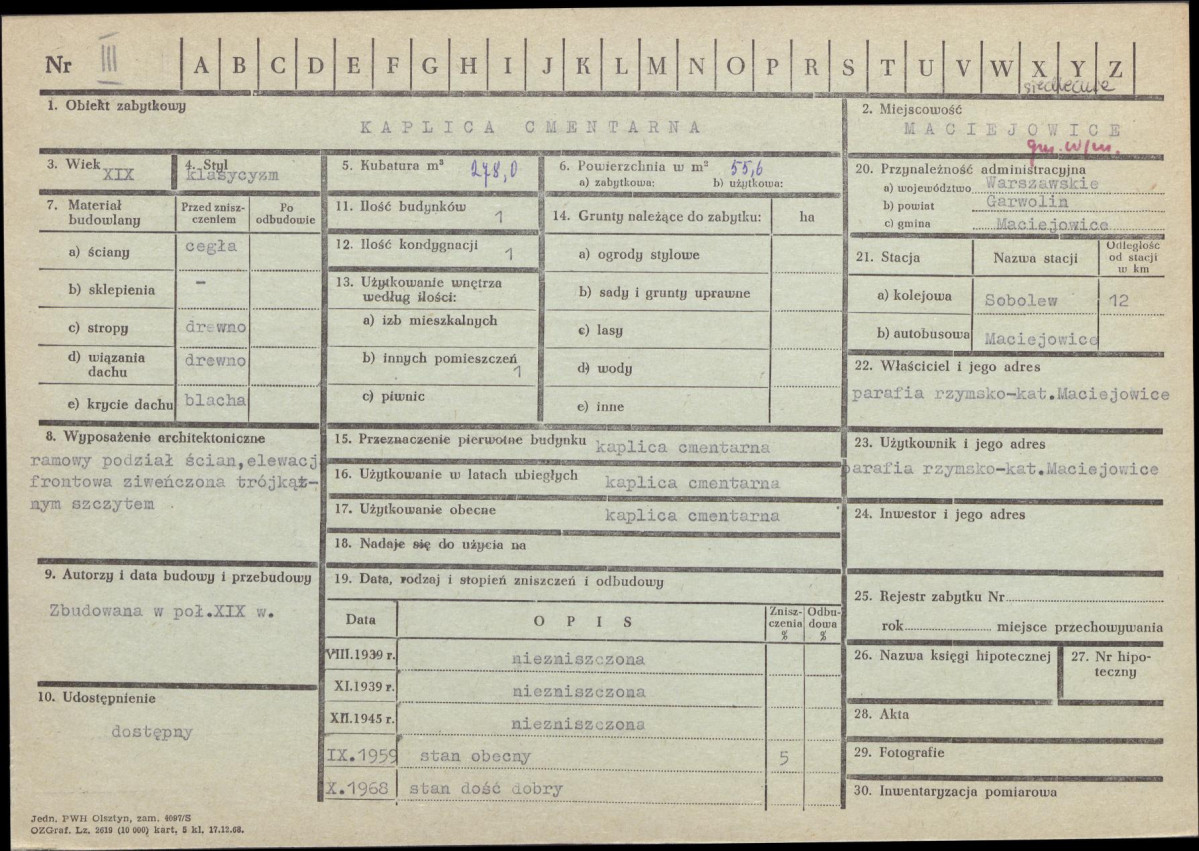 Nr III A B C D E F G H I J K L M N O P R S T U V W X Y Z
siedleckie
1. Obiekt zabytkowy
KAPLICA CMENTARNA
2. Miejscowość
MACIEJOWICE
gm. w/m.
3. Wiek
XIX
4. Styl
klasycyzm
5. Kubatura m³ 278,0
6. Powierzchnia w m² 55,6
a) zabytkowa: b) użytkowa:
7. Materiał budowlany
Przed zniszczeniem
Po odbudowie
a) ściany cegła
b) sklepienia –
c) stropy drewno
d) wiązania dachu drewno
e) krycie dachu blacha
8. Wyposażenie architektoniczne
ramowy podział ścian,elewacj
frontowa ziweńczona trójkąt-
nym szczytem
9. Autorzy i data budowy i przebudowy
Zbudowana w poł.XIX w.
10. Udostępnienie
dostępny
11. Ilość budynków 1
12. Ilość kondygnacji 1
13. Użytkowanie wnętrza
według ilości:
a) izb mieszkalnych
b) innych pomieszczeń 1
c) piwnic
14. Grunty należące do zabytku: ha
a) ogrody stylowe
b) sady i grunty uprawne
c) lasy
d) wody
e) inne
15. Przeznaczenie pierwotne budynku kaplica cmentarna
16. Użytkowanie w latach ubiegłych kaplica cmentarna
17. Użytkowanie obecne kaplica cmentarna
18. Nadaje się do użycia na
19. Data, rodzaj i stopień zniszczeń i odbudowy
Data OPIS Zniszczenia % Odbudowa %
VIII.1939 r. niezniszczona
XI.1939 r. niezniszczona
XII.1945 r. niezniszczona
IX.1959 stan obecny 5
X.1968 stan dość dobry
20. Przynależność administracyjna
a) województwo Warszawskie
b) powiat Garwolin
c) gmina Maciejowice
21. Stacja Nazwa stacji Odległość od stacji w km
a) kolejowa Sobolew 12
b) autobusowa Maciejowice
22. Właściciel i jego adres
parafia rzymsko-kat.Maciejowice
23. Użytkownik i jego adres
parafia rzymsko-kat.Maciejowice
24. Inwestor i jego adres
25. Rejestr zabytku Nr
rok miejsce przechowywania
26. Nazwa księgi hipotecznej
27. Nr hipo-
teczny
28. Akta
29. Fotografie
30. Inwentaryzacja pomiarowa
Jedn. PWH Olsztyn, zam. 4097/S
OZGraf. Lz. 2619 (10 000) kart, 5 kl. 17.12.68.